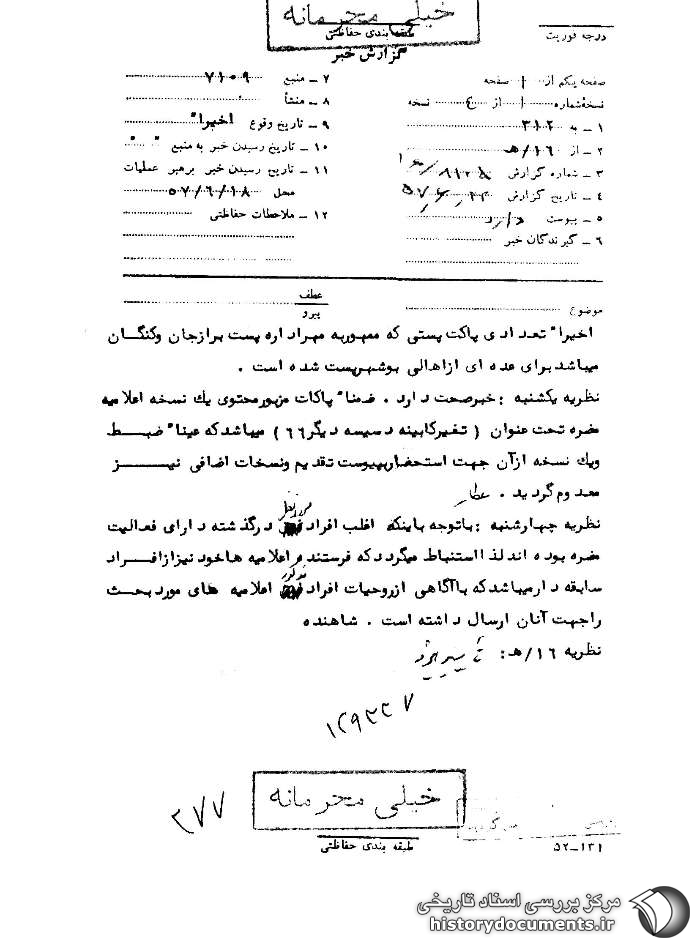 خیلی محرمانه
طبقه بندی حفاظتی
درجه فوریت
گزارش خبر
صفحه یکم از ۱ صفحه
نسخه شماره ۱ از ۴ نسخه
۱ – به ۳۱۲
۲ – از ۱۶/هـ
۳ – شماره گزارش
۴ – تاریخ گزارش
۵ – پیوست دارد
۶ – گیرندگان خبر
۷ – منبع ۷۱۰۹
۸ – منشأ
۹ – تاریخ وقوع اخیرا"
۱۰ – تاریخ رسیدن خبر به منبع " "
۱۱ – تاریخ رسیدن خبر برهبر عملیات
محل ۵۷/۶/۱۸
۱۲ – ملاحظات حفاظتی
موضوع
عطف
پیرو
اخیرا" تعدادی پاکت پستی که ممهوربه مهراداره پست برازجان وکنگان
میباشدبرای عده ای ازاهالی بوشهرپست شده است .
نظریه یکشنبه : خبرصحت دارد . ضمنا" پاکات مزبورمحتوی یك نسخه اعلامیه
مضره تحت عنوان ( تغیرکابینه دسیسه دیگر۶۶ ) میباشدکه عینا" ضبط
ویك نسخه ازآن جهت استحضارپیوست تقدیم ونسخات اضافی نیز
معدوم گردید . عطار
نظریه چهارشنبه : باتوجه باینکه اغلب افراد درگذشته دارای فعالیت
مضره بوده اند لذا استنباط میگرددکه فرستنده اعلامیه هاخود نیزازافراد
سابقه دارمیباشدکه باآگاهی ازروحیات افراد مذکور اعلامیه های مورد بحث
راجهت آنان ارسال داشته است . شاهنده
نظریه ۱۶/هـ :
۱۲۹۳۳۷
۳۷۷
خیلی محرمانه
طبقه بندی حفاظتی
۵۲–۱۳۱
مرکز بررسی اسناد تاریخی
historydocuments.ir